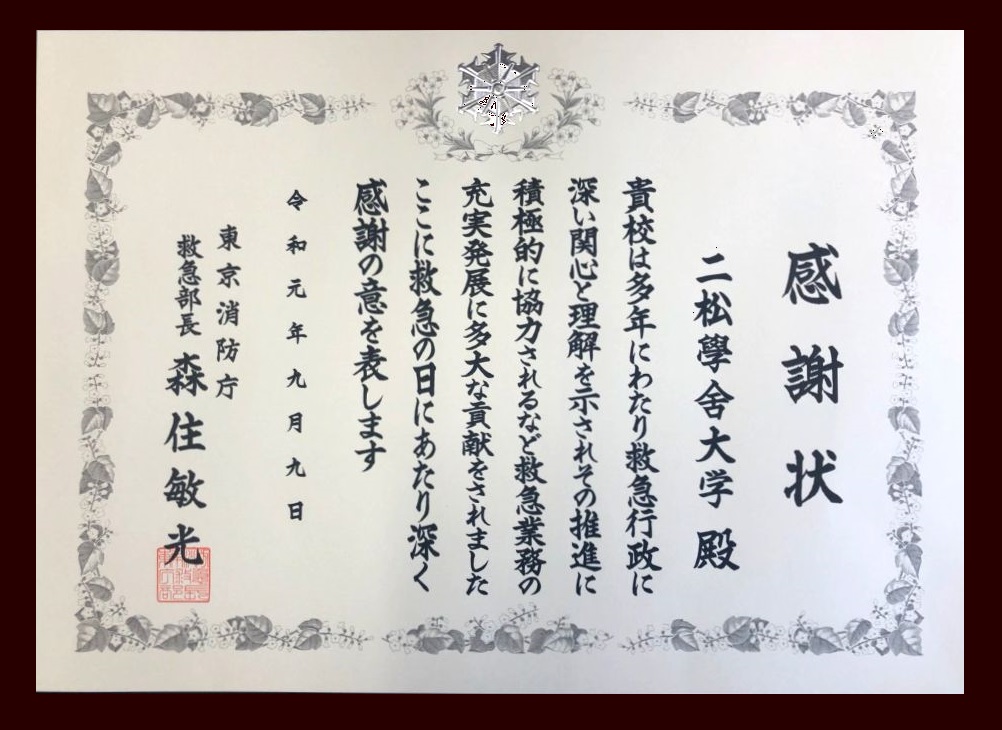 感謝状
二松學舎大学 殿
貴校は多年にわたり救急行政に
深い関心と理解を示されその推進に
積極的に協力されるなど救急業務の
充実発展に多大な貢献をされました
ここに救急の日にあたり深く
感謝の意を表します
令和元年九月九日
東京消防庁
救急部長 森住敏光